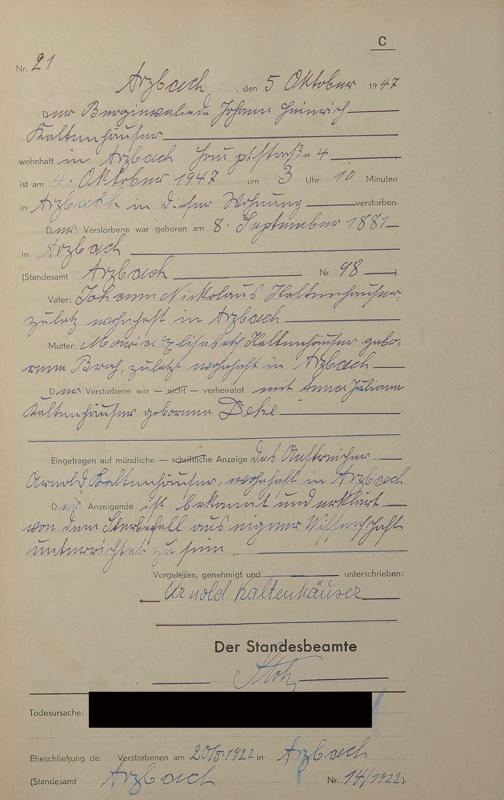 C
Nr. 21
Arzbach, den 5 Oktober 1947
Der Berginvalide Johann Heinrich
Kaltenhäuser
wohnhaft in Arzbach Hauptstraße 4
ist am 4. Oktober 1947 um 3 Uhr 10 Minuten
in Arzbach in dieser Wohnung verstorben.
Der Verstorbene war geboren am 8. September 1881
in Arzbach
(Standesamt Arzbach Nr. 98).
Vater: Johann Nickolaus Kaltenhäuser,
zuletz wohnhaft in Arzbach
Mutter: Maria Elisabeth Kaltenhäuser gebo-
rene, zuletzt wohnhaft in Arzbach
Der Verstorbene war — nicht — verheiratet mit Anna Juliana
Kaltenhäuser geborene
Eingetragen auf mündliche — schriftliche Anzeige des Anstreicher
Arnold Kaltenhäuser, wohnhaft in Arzbach
Der Anzeigende ist bekannt und erklärt
von dem Sterbefall aus eigner Wissenschaft
unterrichtet zu sein.
Vorgelesen, genehmigt und unterschrieben:
Arnold Kaltenhäuser
Der Standesbeamte
Todesursache:
Eheschließung de Verstorbenen am 20/5.1922 in Arzbach
(Standesamt Arzbach Nr. 14/1922).